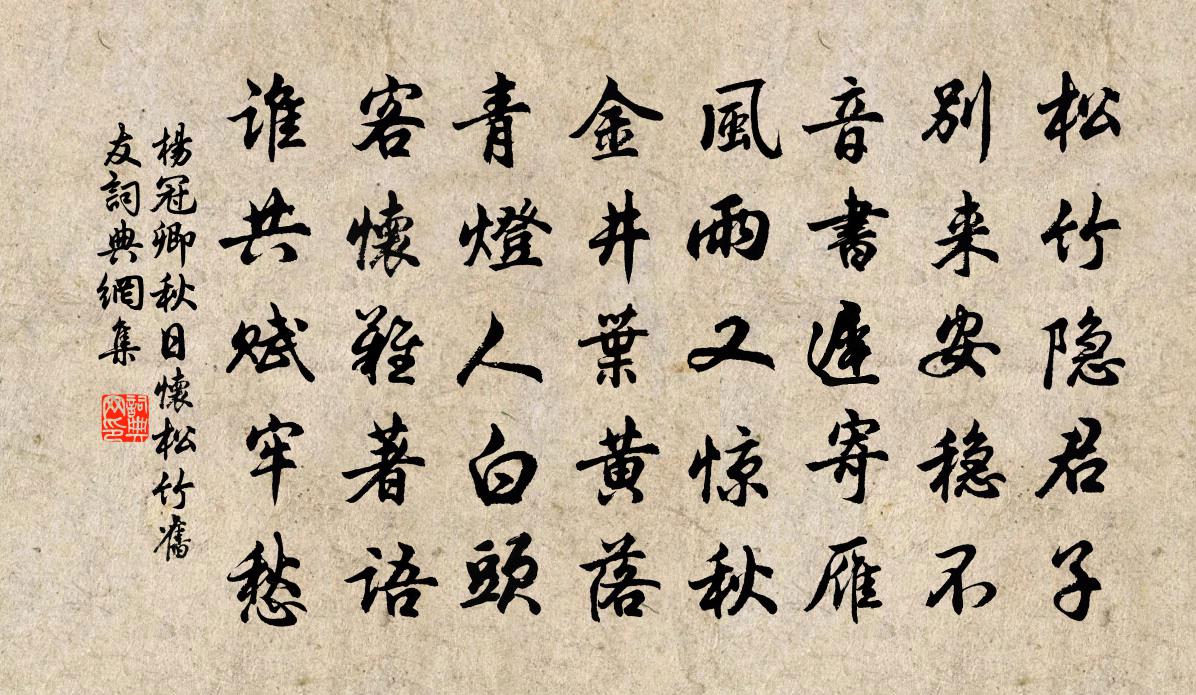 松竹隐君子
别来安稳不
音書遲寄雁
風雨又惊秋
金井葉黄落
青燈人白頭
客懷難著語
谁共赋牢愁
楊冠卿秋日懷松竹舊
友詞典網集
詞典網印